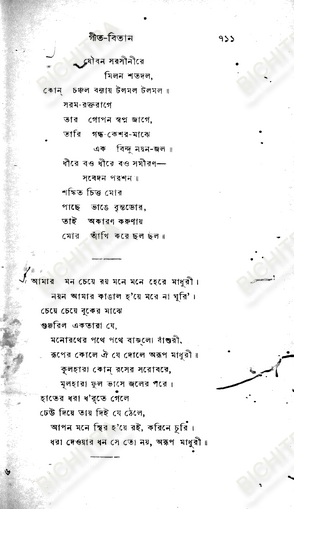 গীত-বিতান ৭১১
যৌবন সরসীনীরে
মিলন শতদল,
কোন্ চঞ্চল বন্যায় টলমল টলমল॥
সরম-রক্তরাগে
তার গোপন স্বপ্ন জাগে,
তারি গন্ধ-কেশর-মাঝে
এক বিন্দু নয়ন-জল॥
ধীরে বও ধীরে বও সমীরণ—
সবেদন পরশন॥
শঙ্কিত চিত্ত মোর
পাছে ভাঙে বৃন্তডোর,
তাই অকারণ করুণায়
মোর আঁখি করে ছল ছল॥
আমার মন চেয়ে রয় মনে মনে হেরে মাধুরী।
নয়ন আমার কাঙাল হ'য়ে মরে না ঘুরি'।
চেয়ে চেয়ে বুকের মাঝে
গুঞ্জরিল একতারা যে,
মনোরথের পথে পথে বাজ্‌লো বাঁশুরী.
রূপের কোলে ঐ যে দোলে অরূপ মাধুরী॥
কূলহারা কোন্ রসের সরোবরে,
মূলহারা ফুল ভাসে জলের পরে।
হাতের ধরা ধ'র্‌তে গেলে
ঢেউ দিয়ে তায় দিই যে ঠেলে,
আপন মনে স্থির হ'য়ে রই, করিনে চুরি।
ধরা দেওয়ার ধন সে তো নয়, অরূপ মাধুরী॥
BICHITRA
BICHITRA
BICHITRA
BICHITRA
BICHITRA
BICHITRA